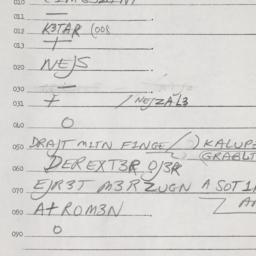 010
011
012 K3TAR (008
013
020 NEJS
030
031 NEJZAL3
040
050 DRAJT M1TN F1NGE ) KALUPE
060 DEREXT3R OJ3R (GRABLT
070 EJR3T M3RZUGN A SOT1
080 A+ROM3N
090